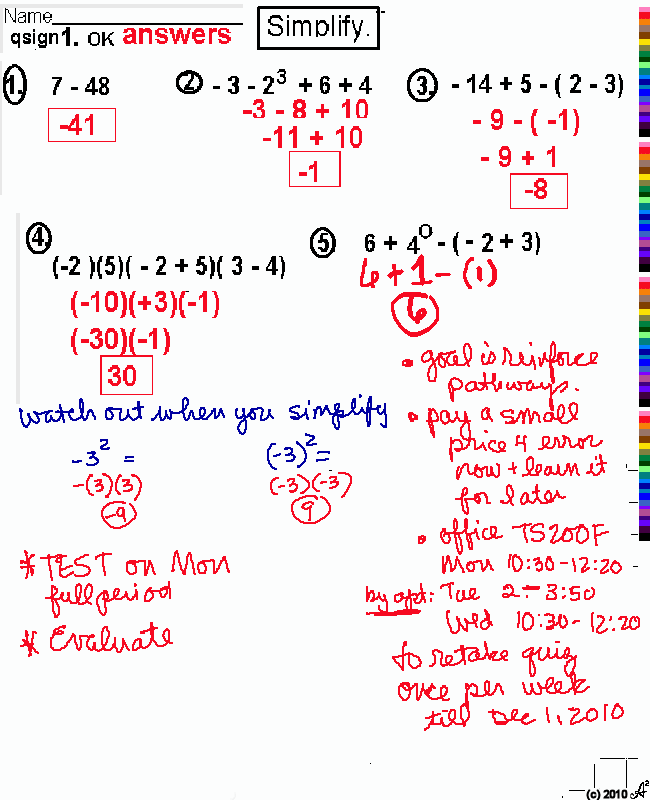 Name
qsign1. OK answers
Simplify.
1. 7 - 48
-41
2 - 3 - 2³ + 6 + 4
-3 - 8 + 10
-11 + 10
-1
3. - 14 + 5 - ( 2 - 3)
- 9 - ( -1)
- 9 + 1
-8
4
(-2 )(5)( - 2 + 5)( 3 - 4)
(-10)(+3)(-1)
(-30)(-1)
30
5 6 + 4⁰ - ( - 2 + 3)
6 + 1 - (1)
6
• goal is reinforce
pathways.
• pay a small
price 4 error
now + learn it
for later
• office TS200F
Mon 10:30-12:20
by apt: Tue 2 - 3:50
Wed 10:30 - 12:20
to retake quiz
once per week
till Dec 1, 2010
watch out when you simplify
-3² =
-(3)(3)
-9
(-3)² =
(-3)(-3)
9
* TEST on Mon
full period
* Evaluate
(c) 2010 A²